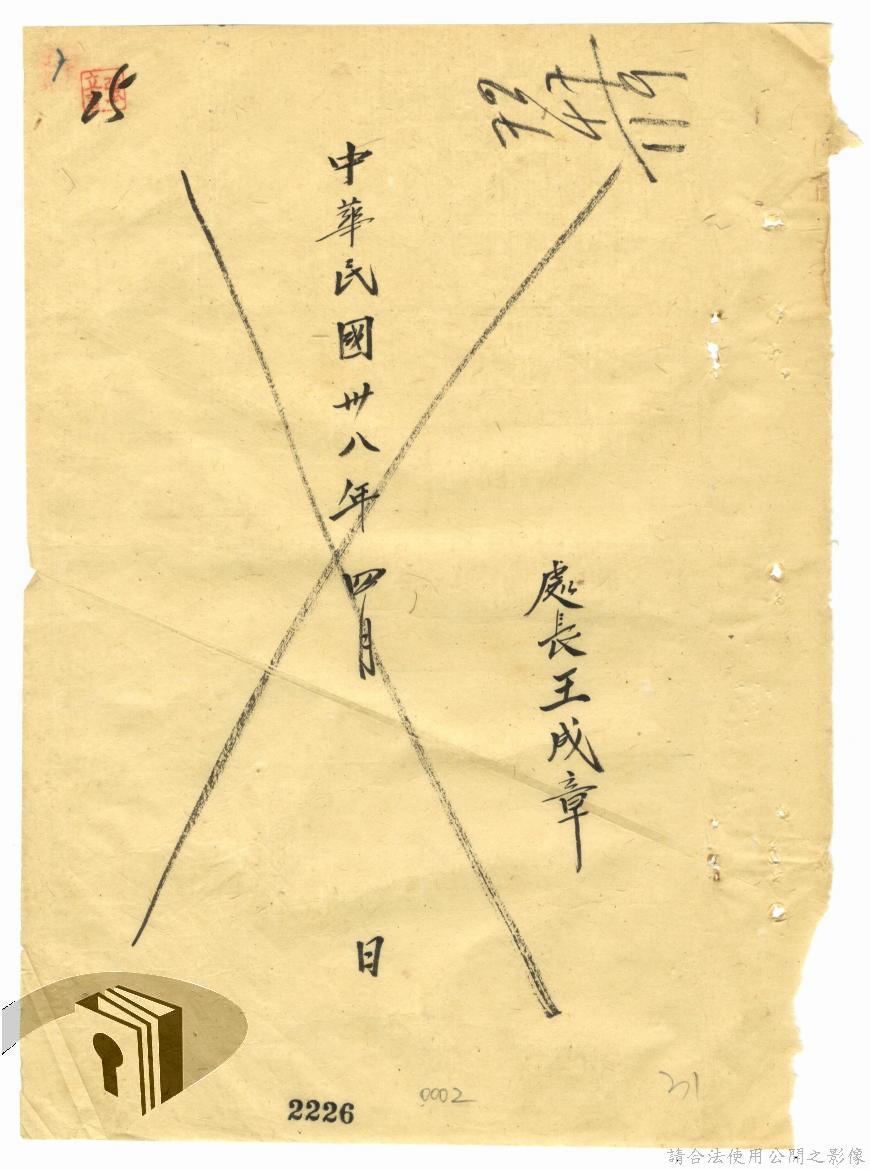 處長王成章
中華民國卅八年四月 日
25
2226
0002
請合法使用公開之影像